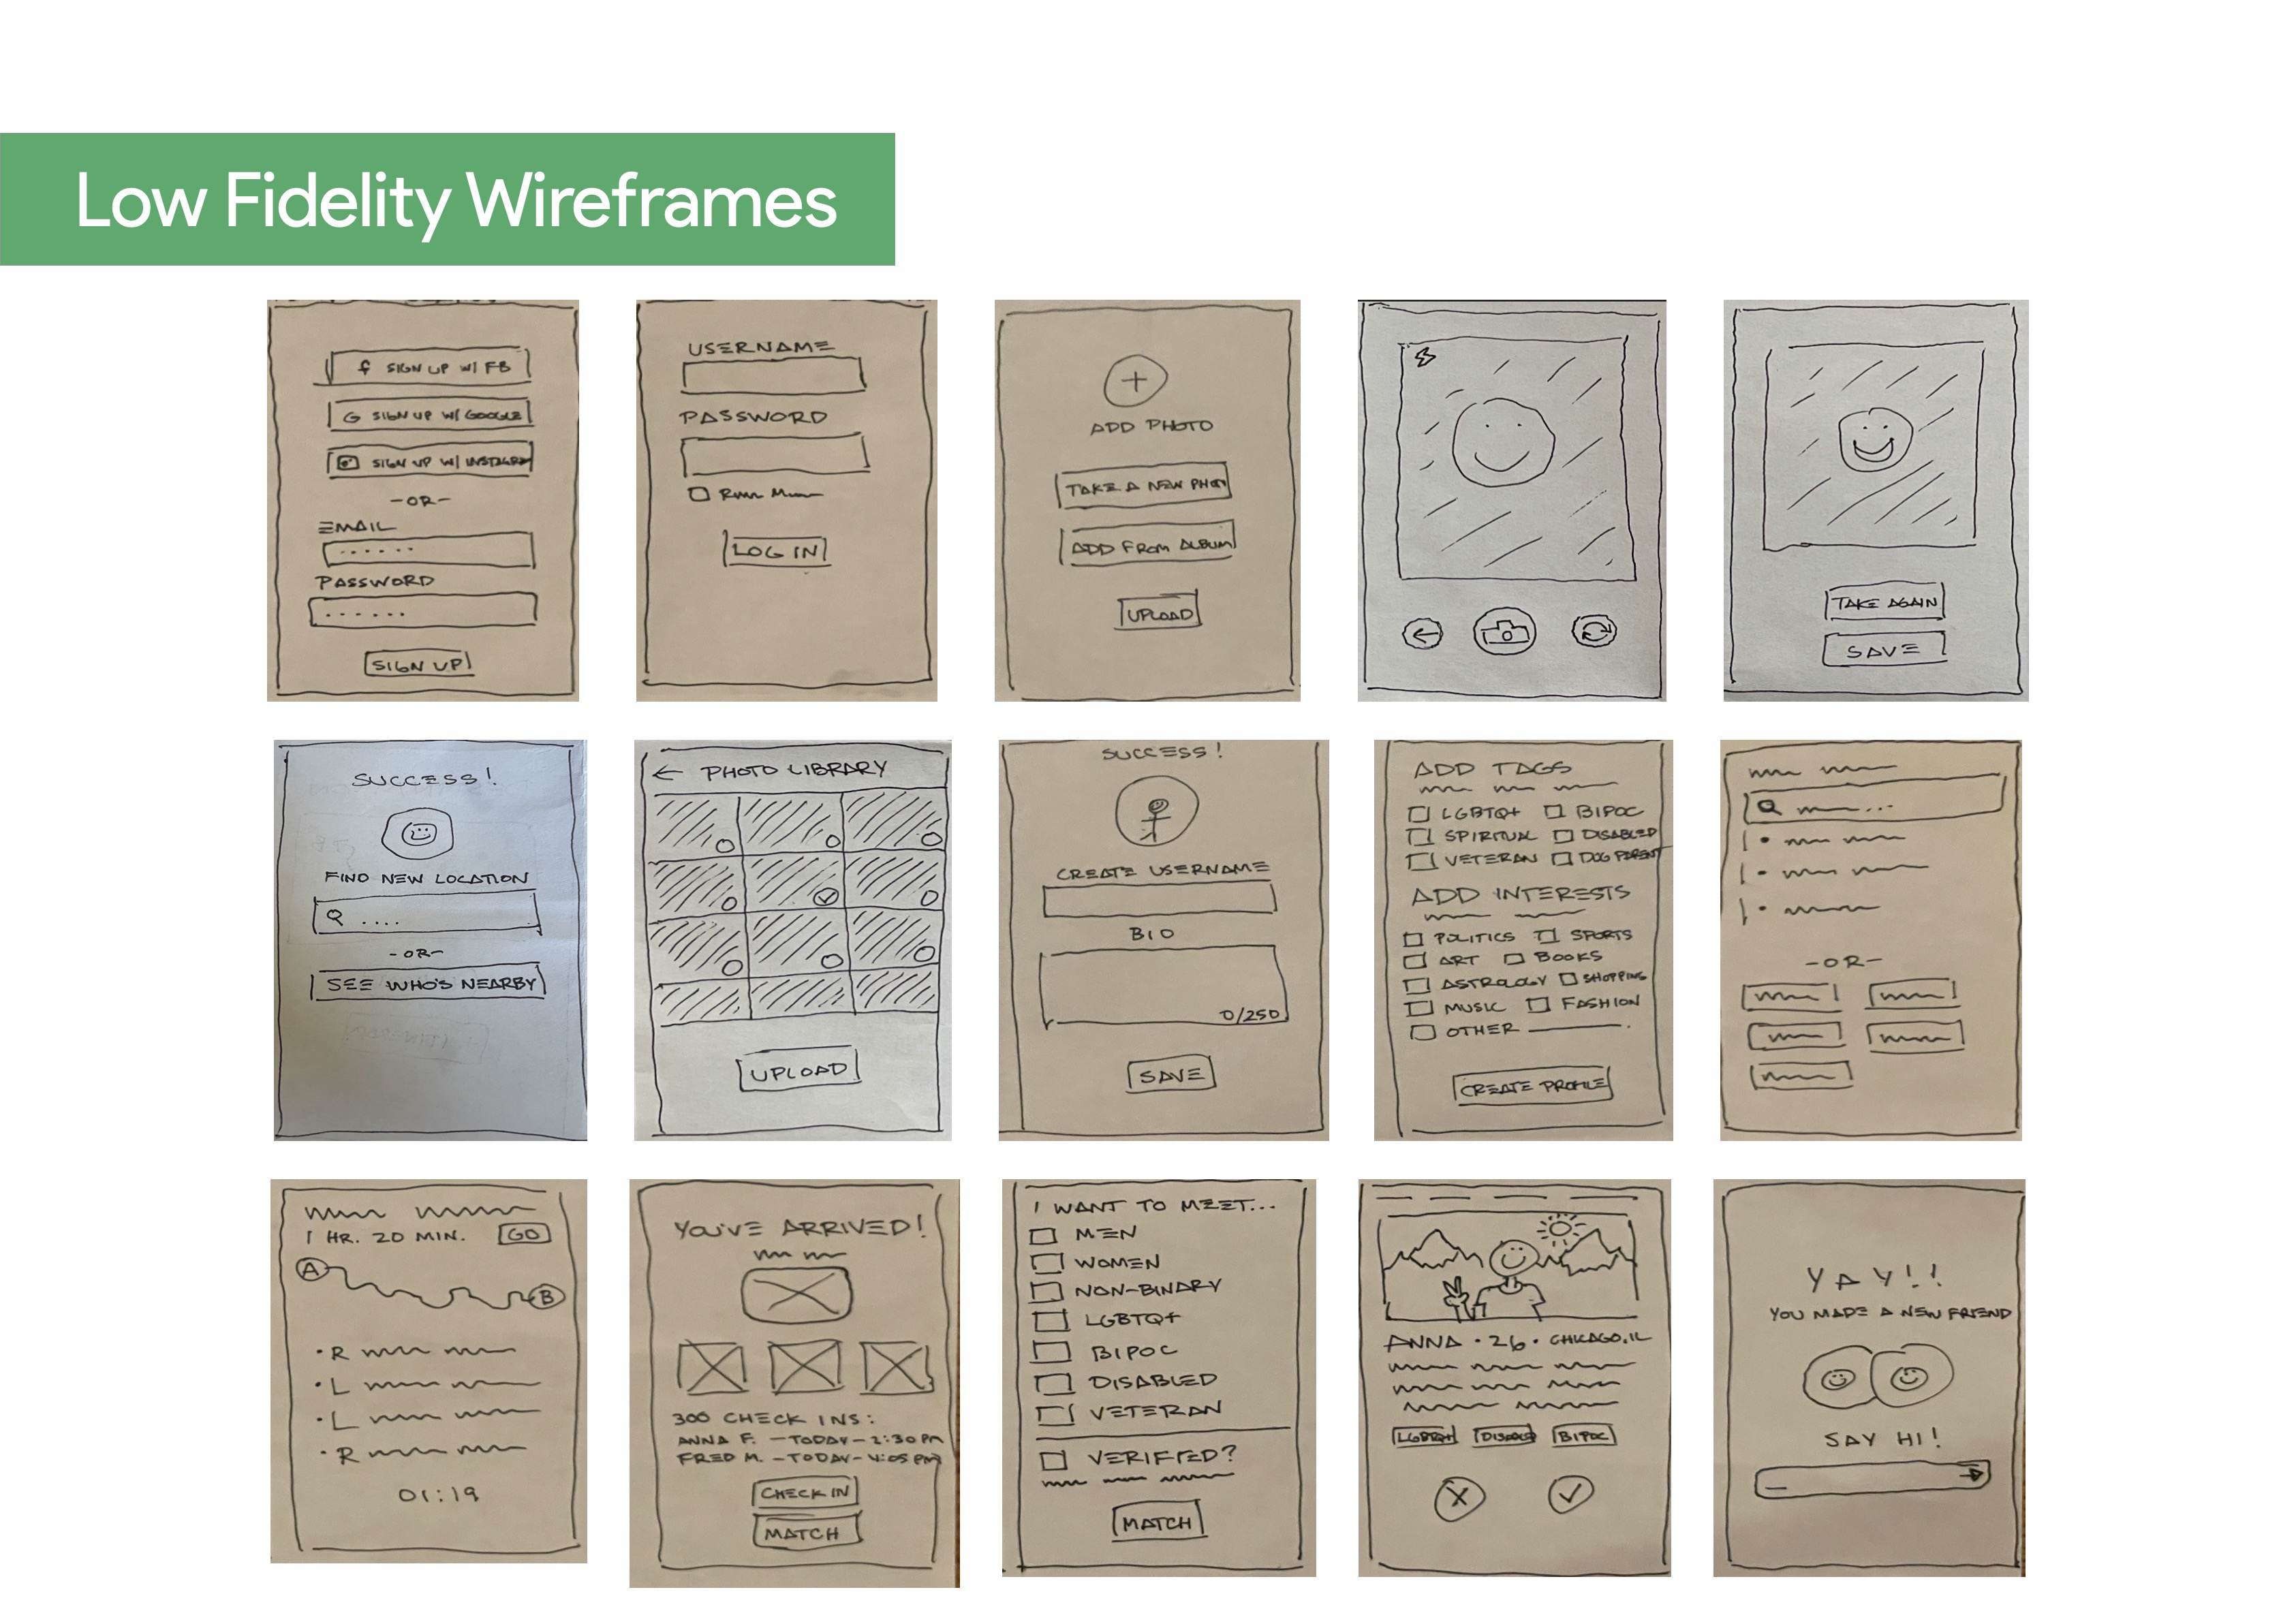 Low Fidelity Wireframes
f SIGN UP W/ FB
G SIGN UP W/ GOOGLE
SIGN UP W/ INSTAGRAM
-OR-
EMAIL
PASSWORD
SIGN UP
USERNAME
PASSWORD
LOG IN
+
ADD PHOTO
TAKE A NEW PHOTO
ADD FROM ALBUM
UPLOAD
TAKE AGAIN
SAVE
SUCCESS!
FIND NEW LOCATION
....
-OR-
SEE WHO'S NEARBY
← PHOTO LIBRARY
UPLOAD
SUCCESS!
CREATE USERNAME
BIO
0/250
SAVE
ADD TAGS
LGBTQ+ BIPOC
SPIRITUAL DISABLED
VETERAN DOG PARENT
ADD INTERESTS
POLITICS SPORTS
ART BOOKS
ASTROLOGY SHOPPING
MUSIC FASHION
OTHER
CREATE PROFILE
-OR-
1 HR. 20 MIN. GO
A
B
• R
• L
• L
• R
01:19
YOU'VE ARRIVED!
300 CHECK INS:
ANNA F. - TODAY - 2:30 PM
FRED M. - TODAY - 4:05 PM
CHECK IN
MATCH
I WANT TO MEET...
MEN
WOMEN
NON-BINARY
LGBTQ+
BIPOC
DISABLED
VETERAN
VERIFIED?
MATCH
ANNA • 26 • CHICAGO, IL
LGBTQ+ DISABLED BIPOC
YAY!!
YOU MADE A NEW FRIEND
SAY HI!